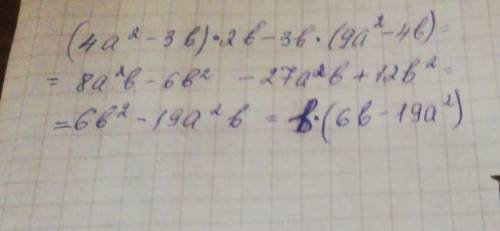 (4a² - 3b)·2b - 3b·(9a² - 4b) =
= 8a²b - 6b² - 27a²b + 12b² =
= 6b² - 19a²b = b·(6b - 19a²)